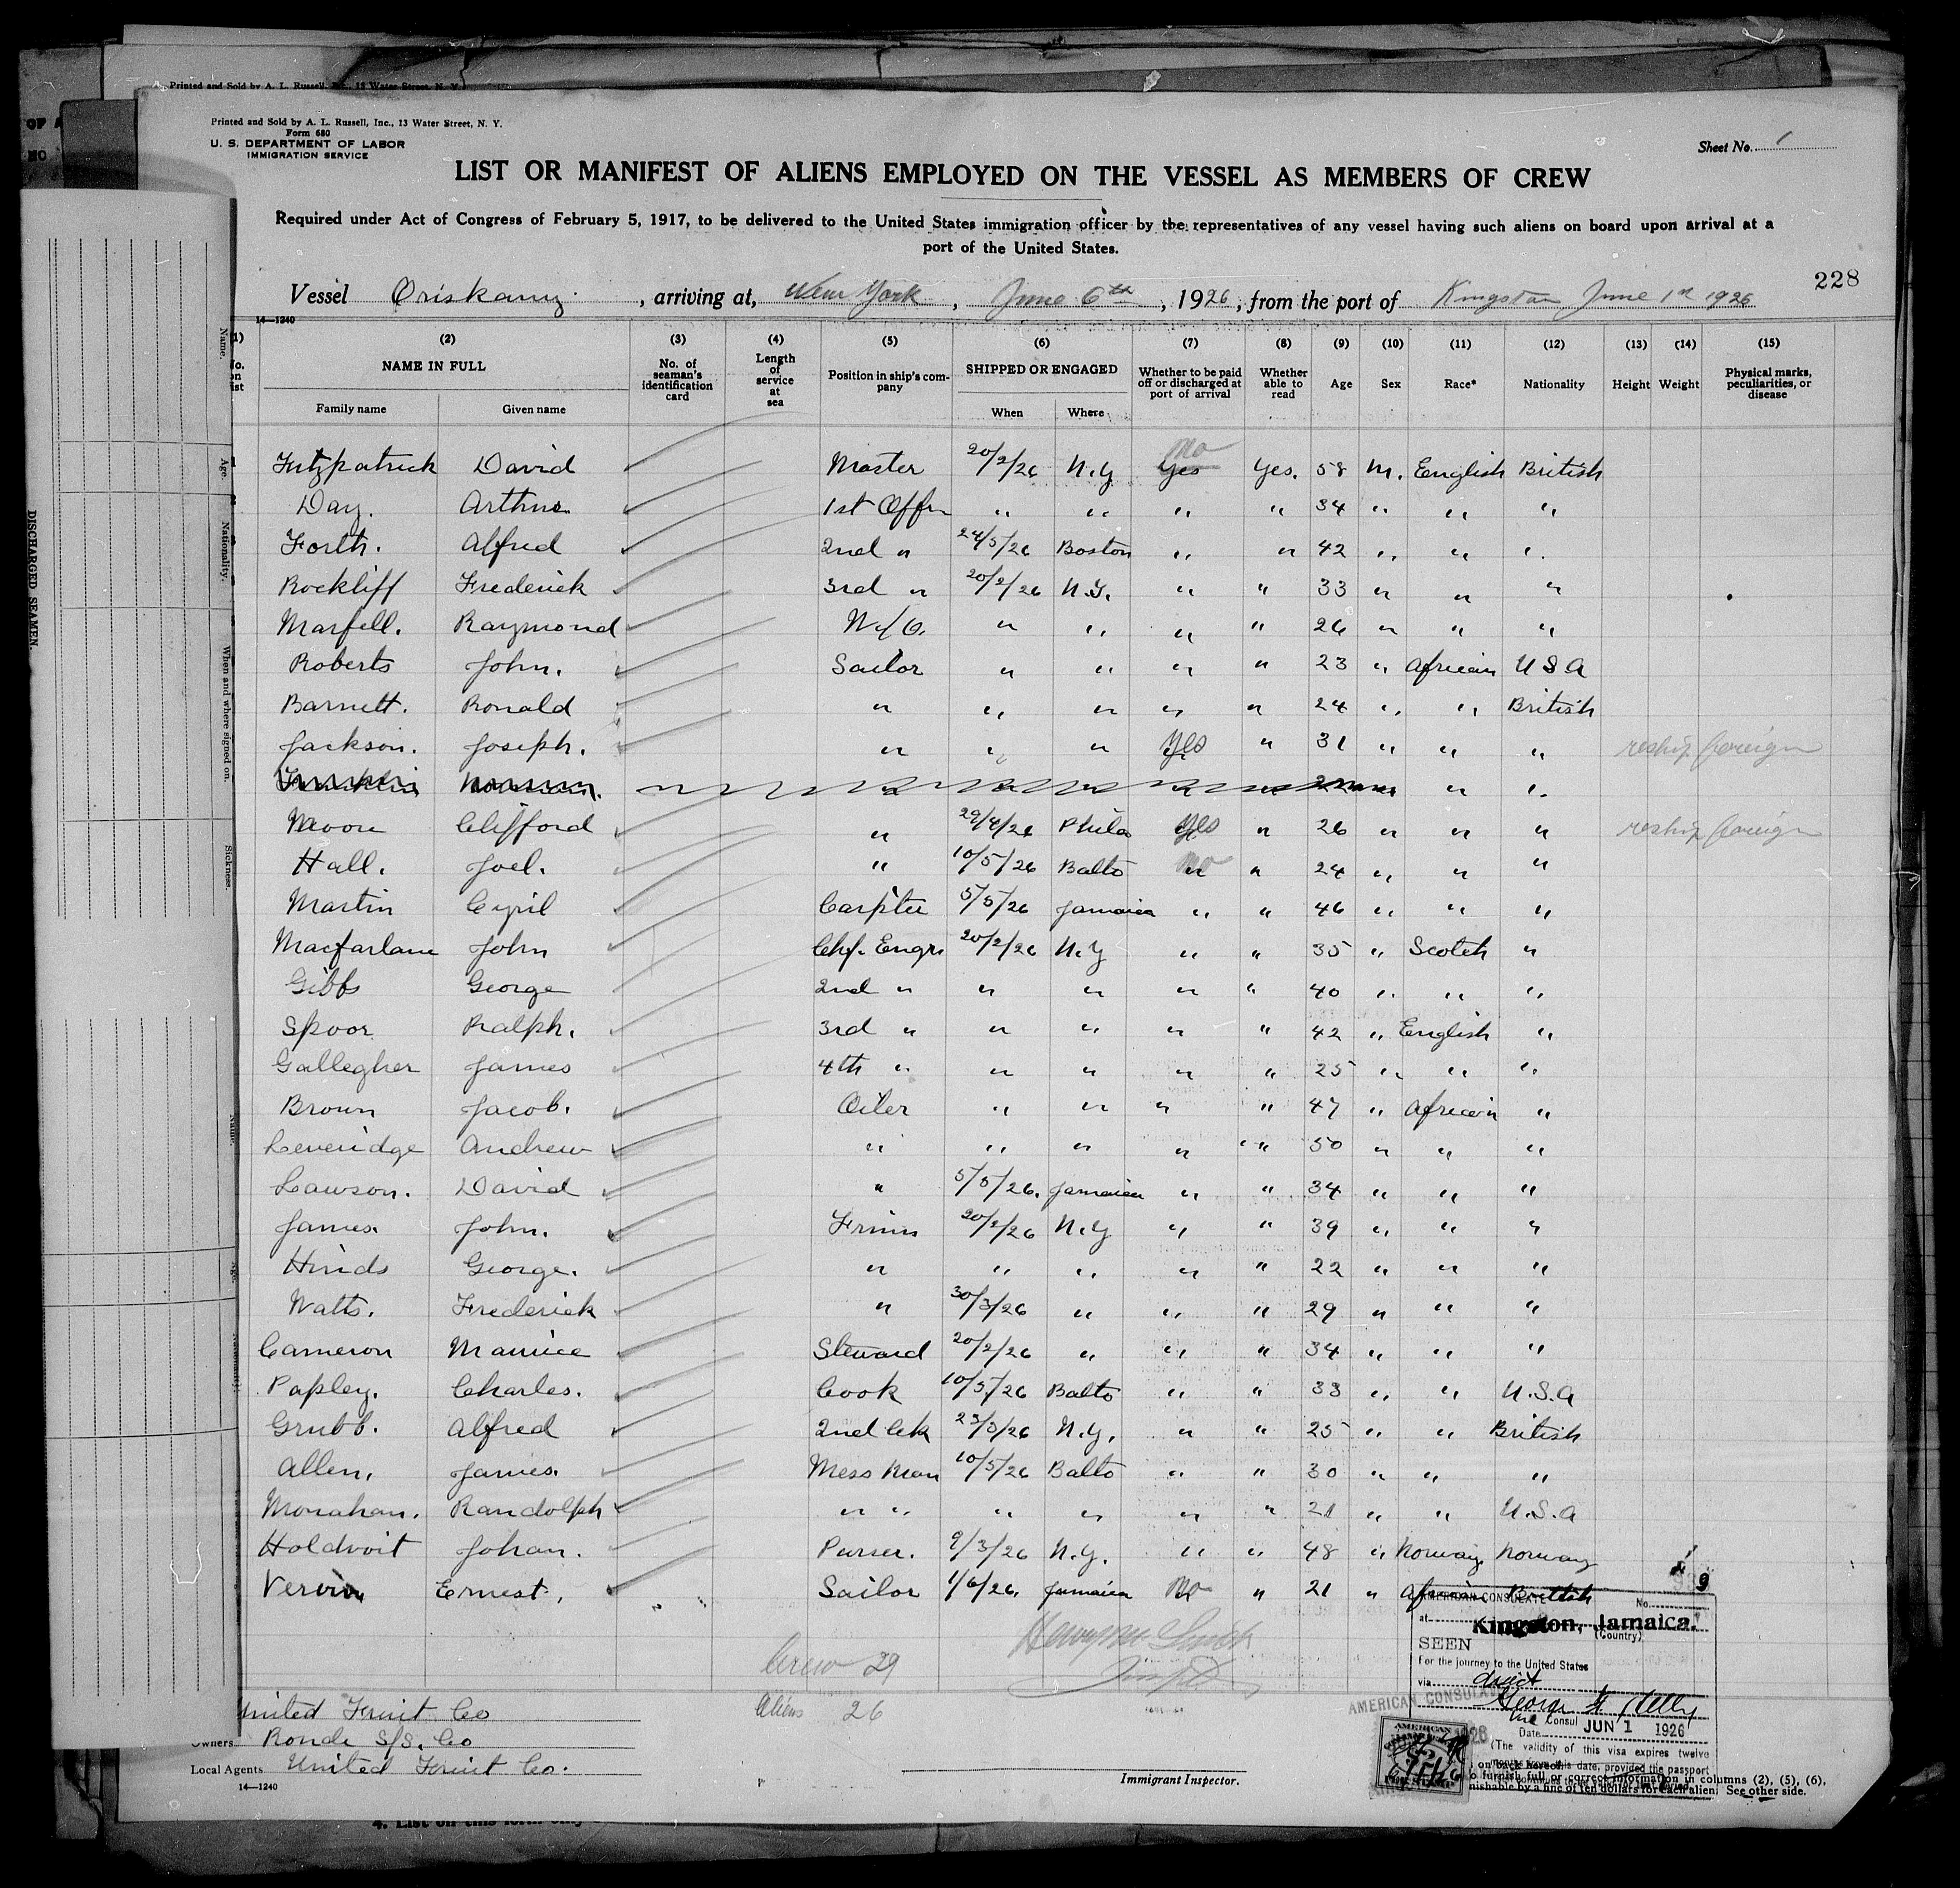 Printed and Sold by A. L. Russell, Inc., 13 Water Street, N. Y.
OF A
Printed and Sold by A. L. Russell, Inc., 13 Water Street, N. Y.
Form 680
U. S. DEPARTMENT OF LABOR
IMMIGRATION SERVICE
Sheet No. 1
LIST OR MANIFEST OF ALIENS EMPLOYED ON THE VESSEL AS MEMBERS OF CREW
Required under Act of Congress of February 5, 1917, to be delivered to the United States immigration officer by the representatives of any vessel having such aliens on board upon arrival at a
port of the United States.
228
Vessel Oriskany, arriving at, New York, June 6th, 1926, from the port of Kingston June 1st 1926
14—1240
(1) (2) (3) (4) (5) (6) (7) (8) (9) (10) (11) (12) (13) (14) (15)
NAME IN FULL No. of seaman's identification card Length of service at sea Position in ship's company SHIPPED OR ENGAGED Whether to be paid off or discharged at port of arrival Whether able to read Age Sex Race* Nationality Height Weight Physical marks, peculiarities, or disease
Family name Given name When Where
Fitzpatrick David Master 20/2/26 N.Y Yes No Yes. 58 M. English British
Day. Arthur 1st Offr " " " " 34 " " "
Forth. Alfred 2nd " 24/5/26 Boston " " 42 " " "
Rockliff Frederick 3rd " 20/2/26 N.Y. " " 33 " " "
Marfell. Raymond W/O. " " " " 26 " " "
Roberts John. Sailor " " " " 23 " African U S A
Barnett. Ronald " " " " " 24 " " British
Jackson. Joseph. " " " Yes " 31 " " " reship foreign
Moore Clifford " 29/4/26 Phila Yes " 26 " " " reship foreign
Hall. Joel. " 10/5/26 Balto No " 24 " " "
Martin Cyril Carpter 5/5/26 Jamaica " " 46 " " "
Macfarlane John Chf. Engr. 20/2/26 N.Y " " 35 " Scotch "
Gibbs George 2nd " " " " " 40 " " "
Spoor Ralph. 3rd " " " " " 42 " English "
Gallegher James 4th " " " " " 25 " " "
Brown Jacob. Oiler " " " " 47 " African "
Leveridge Andrew " " " " " 50 " " "
Lawson. David " 5/5/26. Jamaica " " 34 " " "
James. John. 20/2/26 N.Y " " 39 " " "
Hinds George. " " " " " 22 " " "
Watts. Frederick " 30/3/26 " " " 29 " " "
Cameron Maurice Steward 20/2/26 " " " 34 " " "
Papley. Charles. Cook 10/5/26 Balto " " 33 " " U.S.A
Grubb. Alfred 2nd Ck 23/3/26 N.Y. " " 25 " " British
Allen, James. Mess Man 10/5/26 Balto " " 30 " " "
Monahan. Randolph " " " " " " 21 " " U.S.A
Holdvoit Johan. Purser. 9/3/26 N.Y. " " 48 " Norway Norway
Ernest, Sailor 1/6/26. Jamaica No " 21 " African British
Crew 29
Aliens 26
AMERICAN CONSULATE
No.
at Kingston, Jamaica.
(Country)
SEEN
For the journey to the United States
via direct
Consul
Date JUN 1 1926
(The validity of this visa expires twelve
months from this date, provided the passport
AMERICAN CONSULATE
United Fruit Co
Owners Ronde S/S. Co
Local Agents United Fruit Co.
14—1240
Immigrant Inspector.
on back hereof
to furnish full or correct information in columns (2), (5), (6),
nishable by a fine of ten dollars for each alien. See other side.
DISCHARGED SEAMEN.
Name.
Age.
Nationality.
When and where signed on.
Sickness.
Name.